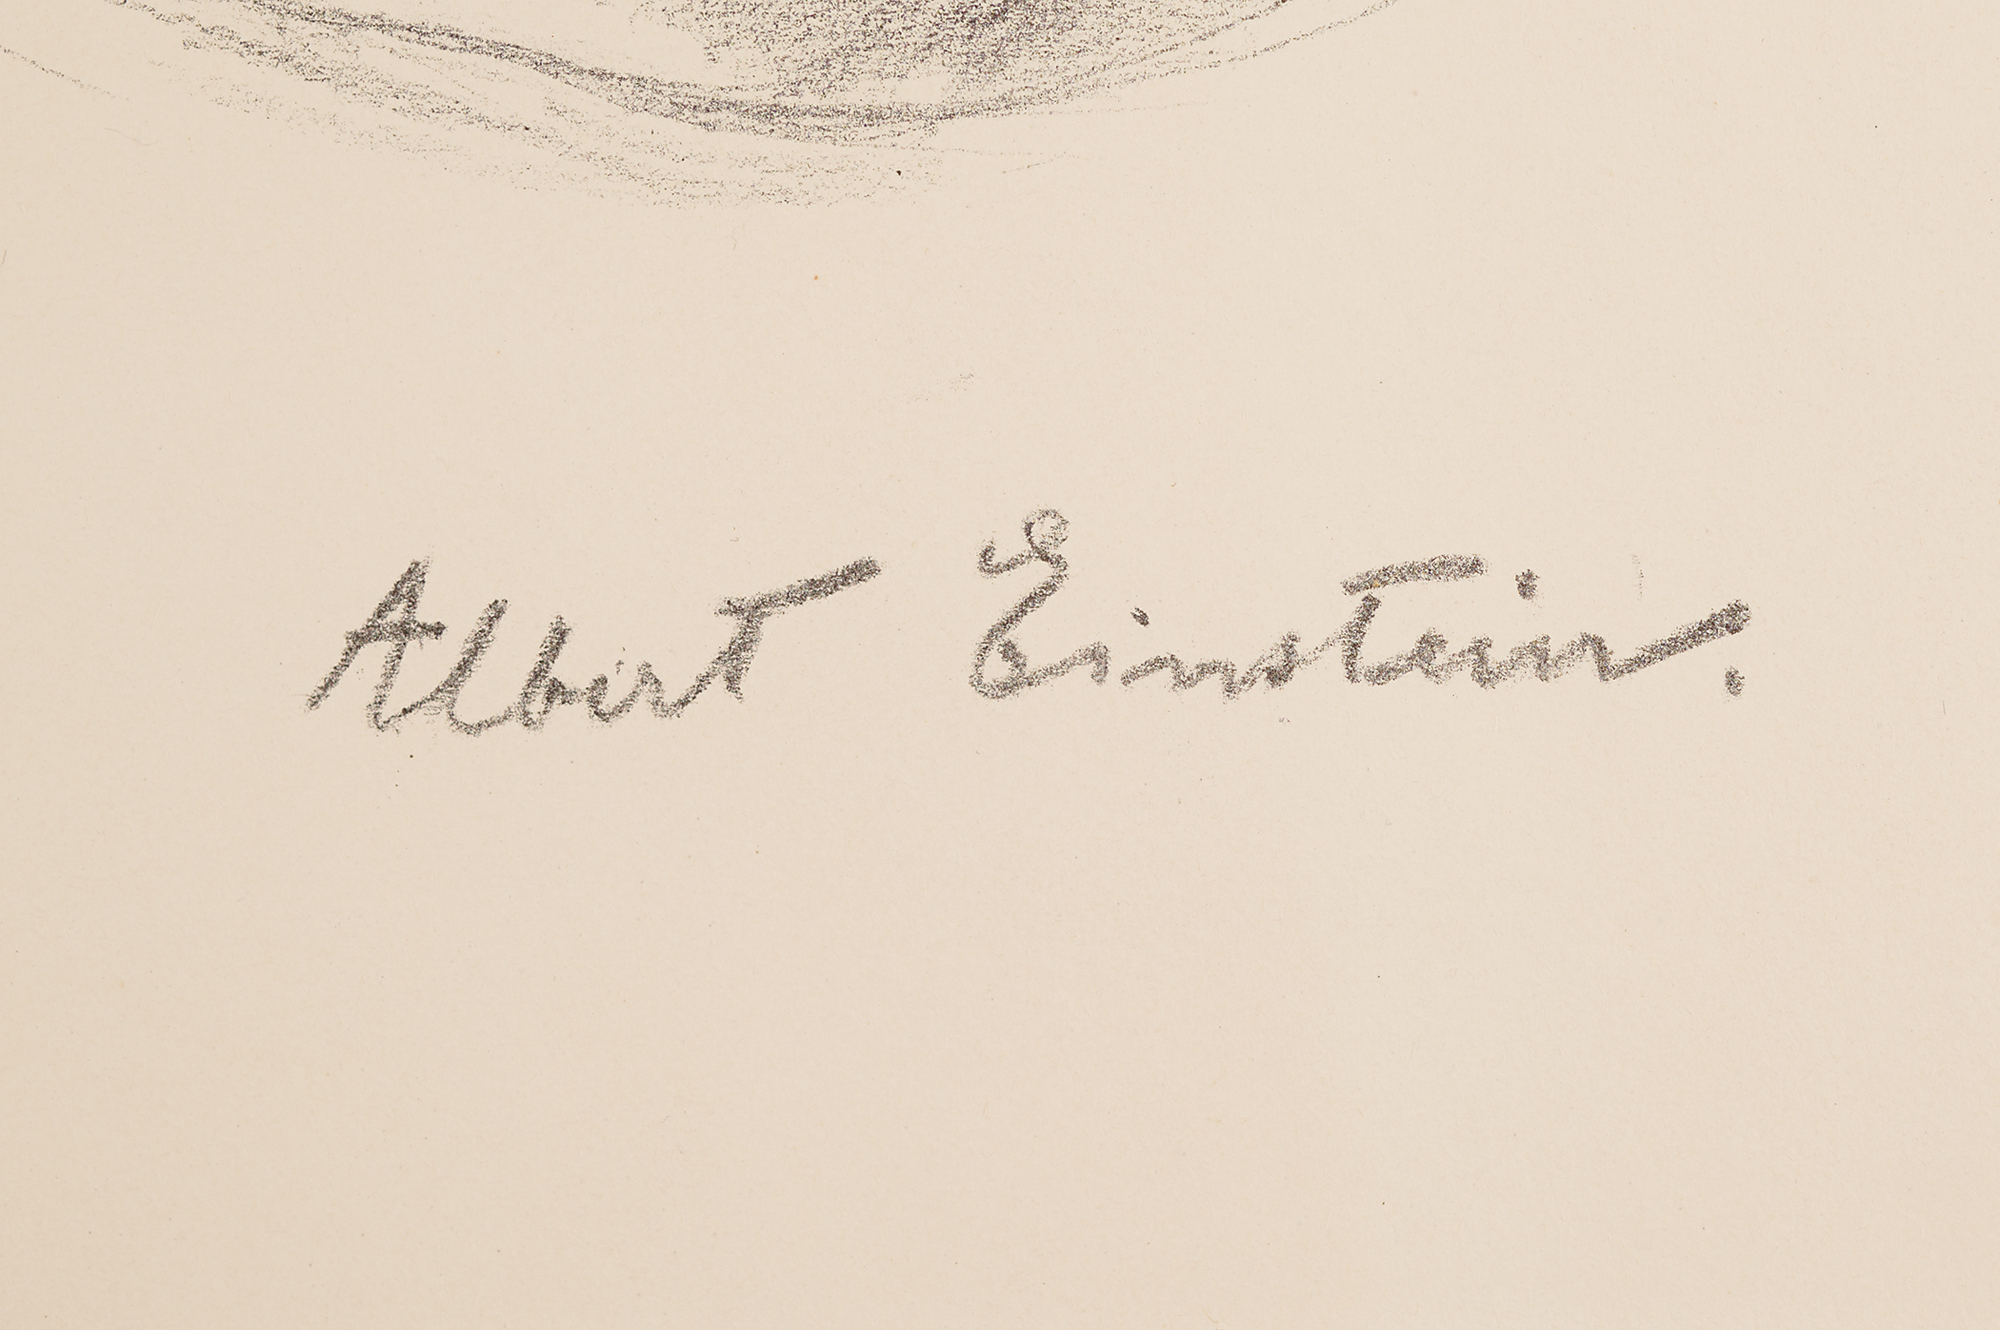 Albert Einstein.